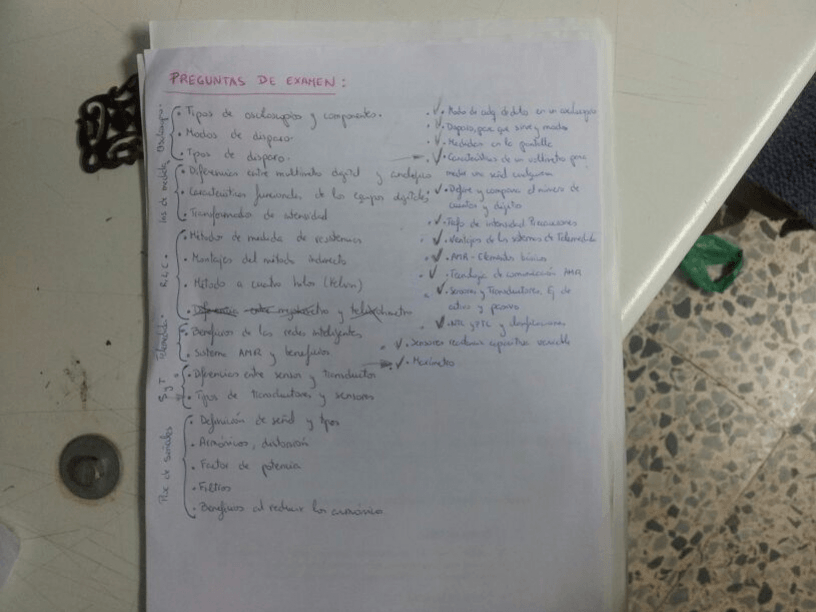 PREGUNTAS DE EXAMEN:
Osciloscopio
• Tipos de osciloscopios y componentes.
• Modos de disparo
• Tipos de disparo.
Ins. de medida
• Diferencias entre multímetro digital y analógico
• Características funcionales de los equipos digitales
• Transformador de intensidad
R, L, C.
• Métodos de medida de resistencias
• Montajes del método indirecto
• Método a cuatro hilos (Kelvin)
• Diferencia entre y
Telemedida
• Beneficios de las redes inteligentes
• Sistema AMR y beneficios
S y T
• Diferencias entre sensor y transductor
• Tipos de transductores y sensores
de señales
• Definición de señal y tipos
• Armónicos, distorsión
• Factor de potencia
• Filtros
• Beneficios al reducir los armónicos
• Modo de de datos en un osciloscopio
• Disparo, para que sirve y modos
• Medidas en la pantalla
• Características de un voltímetro para
medir una señal cualquiera
• Define y compara el número de
cuentas y dígitos
• Trafo de intensidad. Precauciones
• Ventajas de los sistemas de Telemedida
• AMR - Elementos básicos
• Tecnología de comunicación AMR
• Sensores y Transductores. Ej de
activo y pasivo
• y
• Sensores capacitiva variable
• Maxímetro